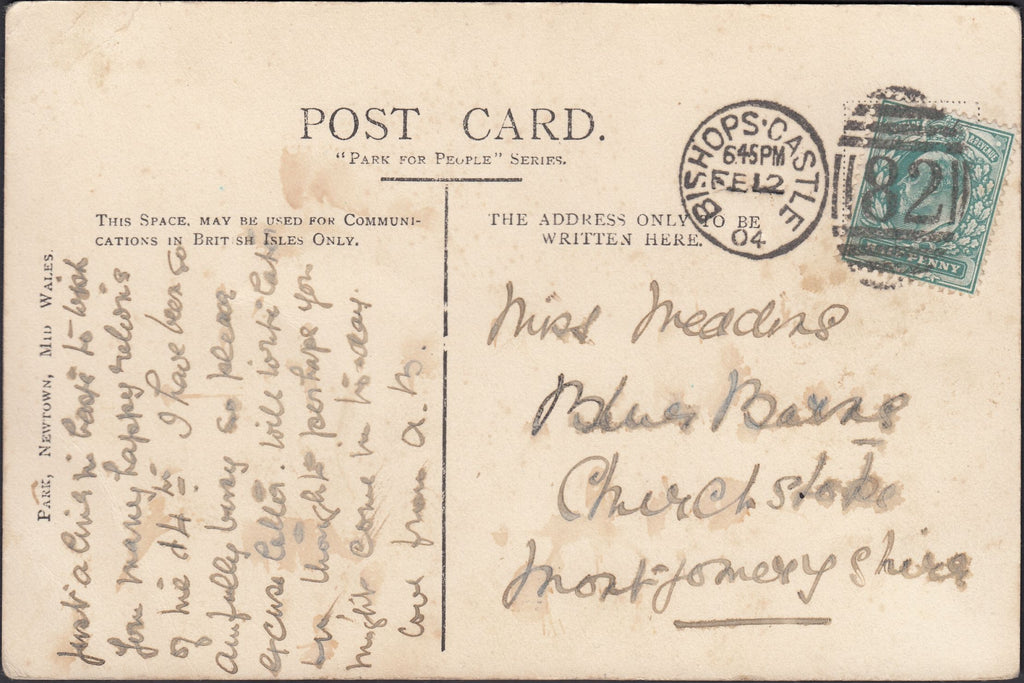 POST CARD.
"PARK FOR PEOPLE" SERIES.
THIS SPACE, MAY BE USED FOR COMMUNI-
CATIONS IN BRITISH ISLES ONLY.
THE ADDRESS ONLY TO BE
WRITTEN HERE.
BISHOPS·CASTLE
6.45PM
FE 12
04
82
REVENUE
HALF PENNY
PARK, NEWTOWN, MID WALES.
Just a line in haste to wish
you many happy returns
of the 14th I have been so
awfully busy so please
excuse letter. Will write later
thought perhaps you
might come in to-day.
Love from A. B.
Miss Meddins
Blue Barns
Churchstoke
Montgomeryshire